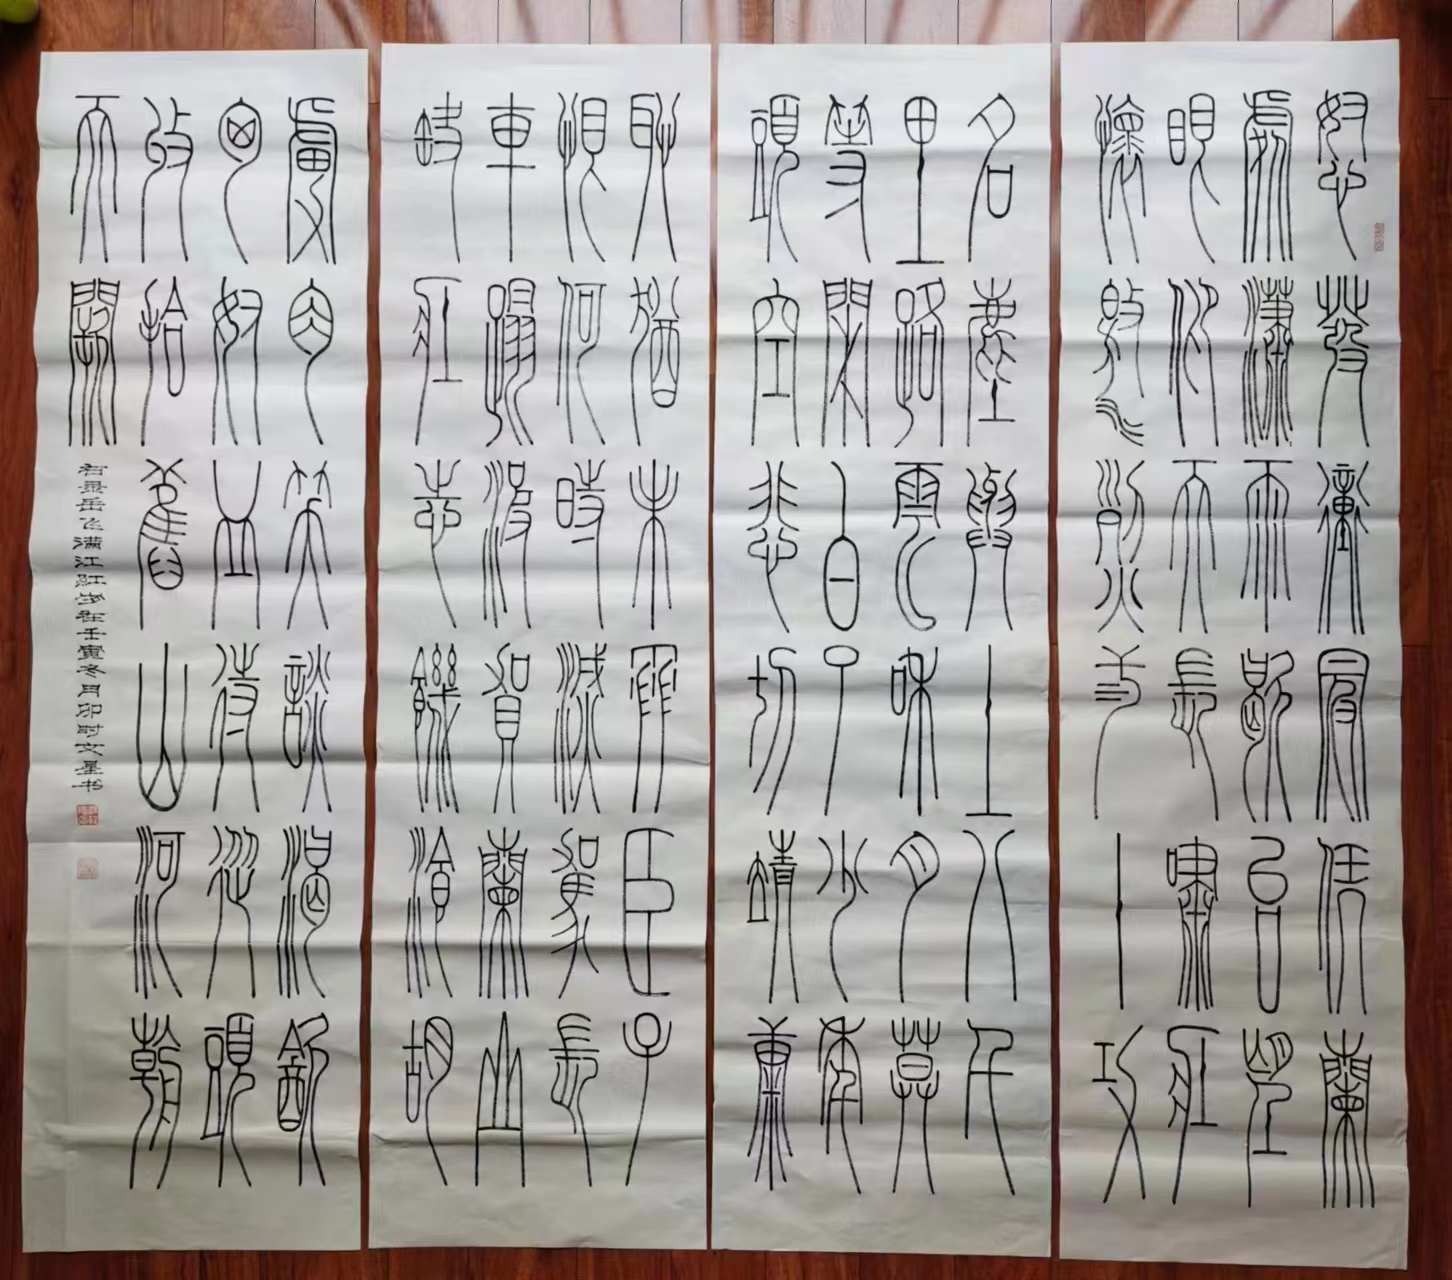 怒髮衝冠憑闌
處瀟雨歇抬望
眼仰天長嘯壯
懷激烈三十功
名塵與土八千
里路雲和月莫
等閒白了少年
頭空悲切靖康
恥猶未雪臣子
恨何時滅駕長
車踏破賀蘭山
缺壯志饑餐胡
虜肉笑談渴飲
匈奴血待從頭
收拾舊山河朝
天闕
右录岳飞满江红岁在壬寅冬月卯时文星书